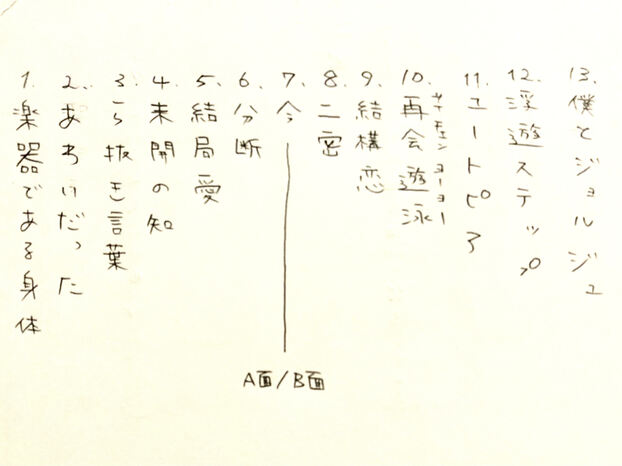 1. 楽器である身体
2. あわいだった
3. ら抜き言葉
4. 未開の知
5. 結局愛
6. 分断
7. 今
8. 二密
9. 結構恋
10. 再会遊泳
サイチェンヨーヨー
11. ユートピア
12. 浮遊ステップ
13. 僕とジョルジュ
A面/B面